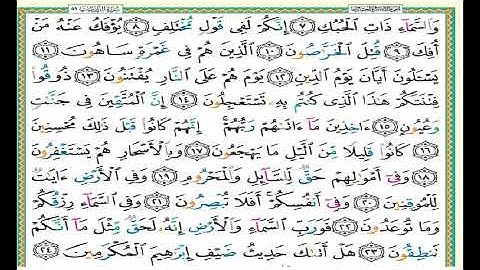 وَٱلسَّمَآءِ ذَاتِ ٱلْحُبُكِ ٧ إِنَّكُمْ لَفِى قَوْلٍ مُّخْتَلِفٍ ٨ يُؤْفَكُ عَنْهُ مَنْ
أُفِكَ ٩ قُتِلَ ٱلْخَرَّٰصُونَ ١٠ ٱلَّذِينَ هُمْ فِى غَمْرَةٍ سَاهُونَ ١١
يَسْـَٔلُونَ أَيَّانَ يَوْمُ ٱلدِّينِ ١٢ يَوْمَ هُمْ عَلَى ٱلنَّارِ يُفْتَنُونَ ١٣ ذُوقُوا۟
فِتْنَتَكُمْ هَٰذَا ٱلَّذِى كُنتُم بِهِۦ تَسْتَعْجِلُونَ ١٤ إِنَّ ٱلْمُتَّقِينَ فِى جَنَّٰتٍ
وَعُيُونٍ ١٥ ءَاخِذِينَ مَآ ءَاتَىٰهُمْ رَبُّهُمْ ۚ إِنَّهُمْ كَانُوا۟ قَبْلَ ذَٰلِكَ مُحْسِنِينَ
١٦ كَانُوا۟ قَلِيلًا مِّنَ ٱلَّيْلِ مَا يَهْجَعُونَ ١٧ وَبِٱلْأَسْحَارِ هُمْ يَسْتَغْفِرُونَ
١٨ وَفِىٓ أَمْوَٰلِهِمْ حَقٌّ لِّلسَّآئِلِ وَٱلْمَحْرُومِ ١٩ وَفِى ٱلْأَرْضِ ءَايَٰتٌ
لِّلْمُوقِنِينَ ٢٠ وَفِىٓ أَنفُسِكُمْ ۚ أَفَلَا تُبْصِرُونَ ٢١ وَفِى ٱلسَّمَآءِ رِزْقُكُمْ
وَمَا تُوعَدُونَ ٢٢ فَوَرَبِّ ٱلسَّمَآءِ وَٱلْأَرْضِ إِنَّهُۥ لَحَقٌّ مِّثْلَ مَآ أَنَّكُمْ
تَنطِقُونَ ٢٣ هَلْ أَتَىٰكَ حَدِيثُ ضَيْفِ إِبْرَٰهِيمَ ٱلْمُكْرَمِينَ ٢٤